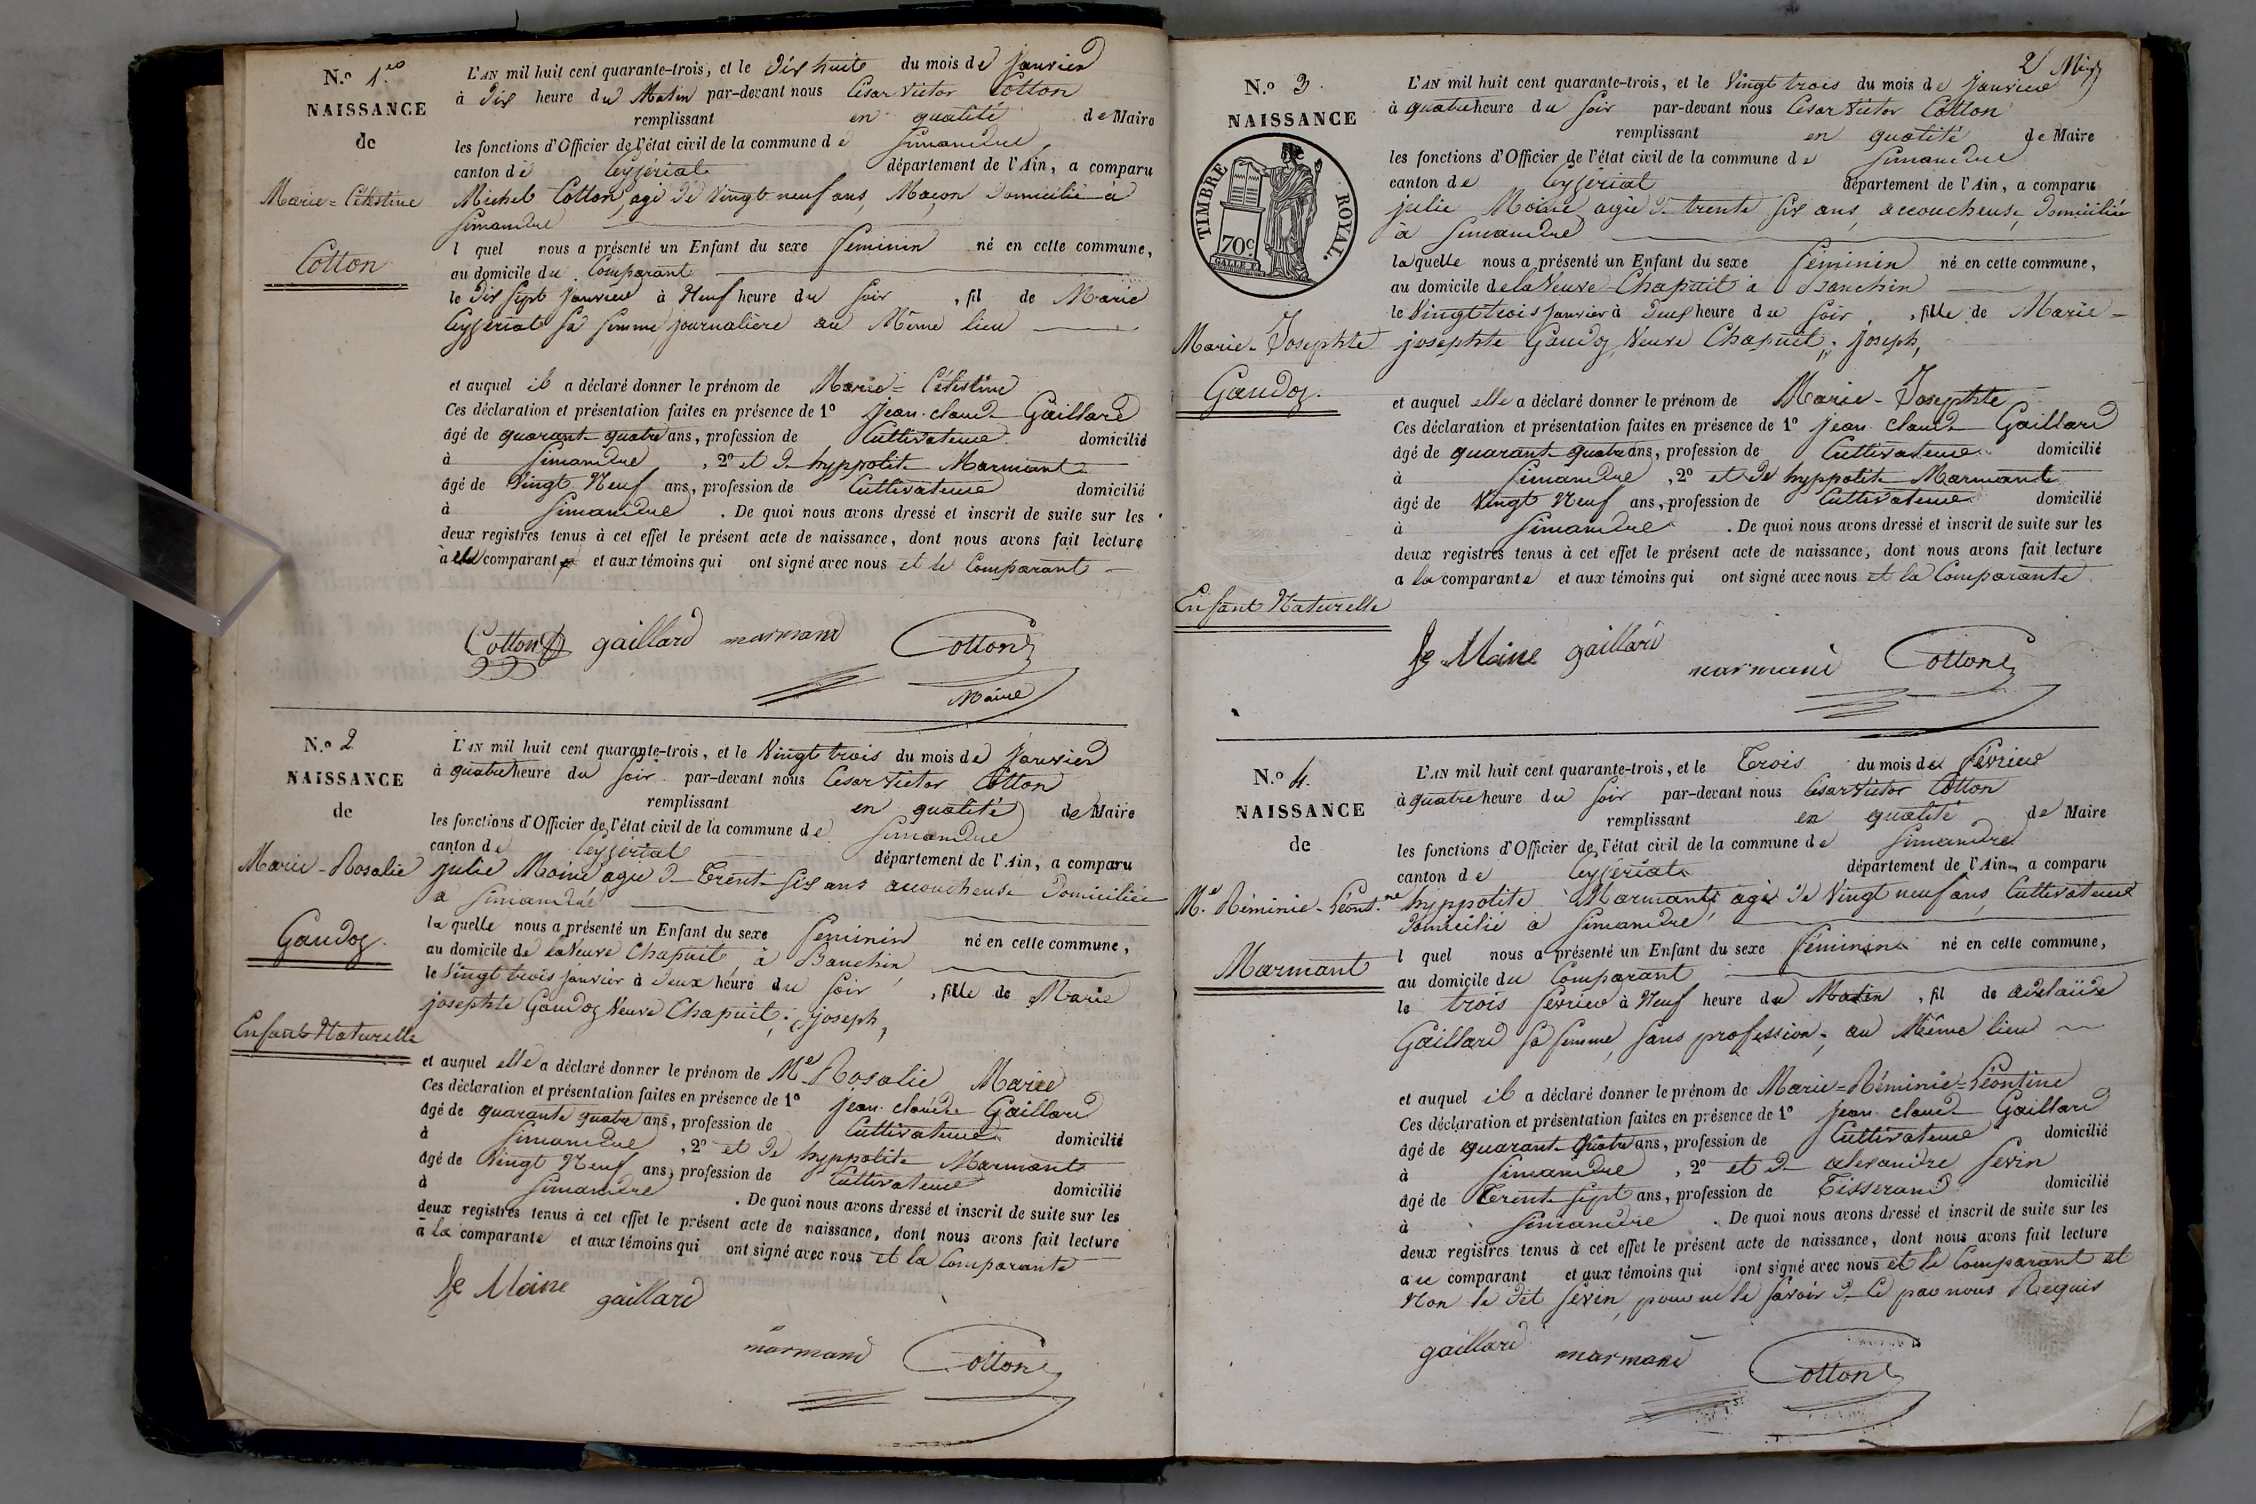 N.º 1.er
NAISSANCE
de
Marie = Célestine
Cotton
L'AN mil huit cent quarante-trois, et le dix huit du mois de janvier
à dix heure du Matin par-devant nous César Victor Cotton
remplissant en qualité de Maire
les fonctions d'Officier de l'état civil de la commune de Simandre,
canton de Ceyzériat département de l'Ain, a comparu
Michel Cotton, agé de vingt neuf ans, Maçon domicilié à
Simandre
l quel nous a présenté un Enfant du sexe féminin né en cette commune,
au domicile du Comparant
le dix sept janvier à Neuf heure du soir, fil de Marie
Ceyzeriat sa femme, journalière au Même lieu
et auquel il a déclaré donner le prénom de Marie = Célestine
Ces déclaration et présentation faites en présence de 1º jean claude Gaillard
âgé de quarante quatre ans, profession de Cultivateur domicilié
à Simandre, 2º et de hyppolite Marmant
âgé de Vingt Neuf ans, profession de Cultivateur domicilié
à Simandre. De quoi nous avons dressé et inscrit de suite sur les
deux registres tenus à cet effet le présent acte de naissance, dont nous avons fait lecture
à comparant et aux témoins qui ont signé avec nous et le Comparant
Cotton gaillard marmand Cotton
Maire
N.º 2
NAISSANCE
de
Marie - Rosalie
Gaudoz.
Enfant Naturelle
L'AN mil huit cent quarante-trois, et le Vingt trois du mois de janvier
à quatre heure du soir par-devant nous César Victor Cotton
remplissant en qualité de Maire
les fonctions d'Officier de l'état civil de la commune de Simandre
canton de Ceyzériat département de l'Ain, a comparu
julie Moine agée de Trente six ans accoucheuse domiciliée
à Simandre
la quelle nous a présenté un Enfant du sexe féminin né en cette commune,
au domicile de la Veuve Chapuit à Banchin
le vingt trois janvier à deux heure du soir, fille de Marie
josephte Gaudoz Veuve Chapuit; joseph,
et auquel elle a déclaré donner le prénom de Me Rosalie Marie
Ces déclaration et présentation faites en présence de 1º jean claude Gaillard
âgé de quarante quatre ans, profession de Cultivateur domicilié
à Simandre, 2º et de hyppolite Marmant
âgé de Vingt Neuf ans, profession de Cultivateur domicilié
à Simandre. De quoi nous avons dressé et inscrit de suite sur les
deux registres tenus à cet effet le présent acte de naissance, dont nous avons fait lecture
à la comparante et aux témoins qui ont signé avec nous et la Comparante
Moine gaillard
marmand Cotton
2
N.º 3.
NAISSANCE
TIMBRE ROYAL.
70c
Marie - Josephte
Gaudoz.
Enfant Naturelle
L'AN mil huit cent quarante-trois, et le Vingt trois du mois de janvier
à quatre heure du soir par-devant nous César Victor Cotton
remplissant en qualité de Maire
les fonctions d'Officier de l'état civil de la commune de Simandre
canton de Ceyzériat département de l'Ain, a comparu
julie Moine agée de trente six ans, accoucheuse, domiciliée
à Simandre
la quelle nous a présenté un Enfant du sexe féminin né en cette commune,
au domicile de la Veuve Chapuit à Banchin
le Vingt trois janvier à deux heure du soir, fille de Marie -
josephte Gaudoz, Veuve Chapuit; joseph,
et auquel elle a déclaré donner le prénom de Marie - Josephte
Ces déclaration et présentation faites en présence de 1º jean claude Gaillard
âgé de quarante quatre ans, profession de Cultivateur domicilié
à Simandre, 2º et de hyppolite Marmant
âgé de Vingt Neuf ans, profession de Cultivateur domicilié
à Simandre. De quoi nous avons dressé et inscrit de suite sur les
deux registres tenus à cet effet le présent acte de naissance, dont nous avons fait lecture
a la comparante et aux témoins qui ont signé avec nous et la Comparante.
Moine gaillard marmand Cotton
N.º 4.
NAISSANCE
de
Me Réminie - Léont.ne
Marmant
L'AN mil huit cent quarante-trois, et le Trois du mois de Février
à quatre heure du soir par-devant nous César Victor Cotton
remplissant en qualité de Maire
les fonctions d'Officier de l'état civil de la commune de Simandre
canton de Ceyzériat département de l'Ain, a comparu
hyppolite Marmant, agé de Vingt neuf ans, Cultivateur
domicilié à Simandre
l quel nous a présenté un Enfant du sexe féminin né en cette commune,
au domicile du Comparant
le trois février à Neuf heure du Matin, fil de adelaïde
Gaillard sa femme, sans profession; au Même lieu
et auquel il a déclaré donner le prénom de Marie = Réminie = Léontine
Ces déclaration et présentation faites en présence de 1º jean claude Gaillard
âgé de quarante quatre ans, profession de Cultivateur domicilié
à Simandre, 2º et de alexandre Sevin
âgé de Trente sept ans, profession de Tisserand domicilié
à Simandre. De quoi nous avons dressé et inscrit de suite sur les
deux registres tenus à cet effet le présent acte de naissance, dont nous avons fait lecture
au comparant et aux témoins qui ont signé avec nous et le Comparant et
Non le dit Sevin, pour ne le savoir de ce par nous Requis
gaillard marmand Cotton